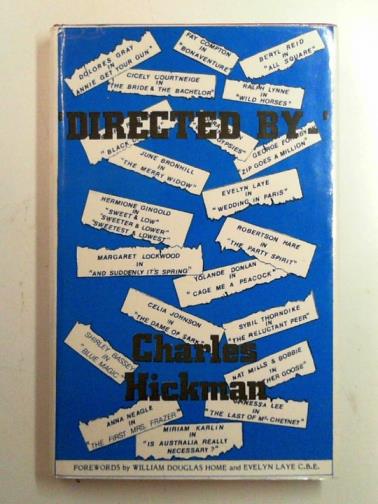 DOLORES GRAY
IN
"ANNIE GET YOUR GUN"
FAY COMPTON
IN
"BONAVENTURE"
BERYL REID
IN
"ALL SQUARE"
CICELY COURTNEIGE
IN
"THE BRIDE & THE BACHELOR"
RALPH LYNNE
IN
"WILD HORSES"
'DIRECTED BY...'
"BLACK
GYPSIES"
GEORGE FORMBY
"ZIP GOES A MILLION"
JUNE BRONHILL
IN
"THE MERRY WIDOW"
EVELYN LAYE
IN
"WEDDING IN PARIS"
HERMIONE GINGOLD
IN
"SWEET & LOW"
"SWEETER & LOWER"
"SWEETEST & LOWEST"
ROBERTSON HARE
IN
"THE PARTY SPIRIT"
MARGARET LOCKWOOD
IN
"AND SUDDENLY IT'S SPRING"
YOLANDE DONLAN
IN
"CAGE ME A PEACOCK"
CELIA JOHNSON
IN
"THE DAME OF SARK"
SYBIL THORNDIKE
IN
"THE RELUCTANT PEER"
SHIRLEY BASSEY
IN
"BLUE MAGIC"
Charles
Hickman
NAT MILLS & BOBBIE
IN
HER GOOSE"
VANESSA LEE
IN
"THE LAST OF MRS CHEYNEY"
ANNA NEAGLE
IN
"THE FIRST MRS. FRAZER"
MIRIAM KARLIN
IN
"IS AUSTRALIA REALLY
NECESSARY?"
FOREWORDS by WILLIAM DOUGLAS HOME and EVELYN LAYE C.B.E.